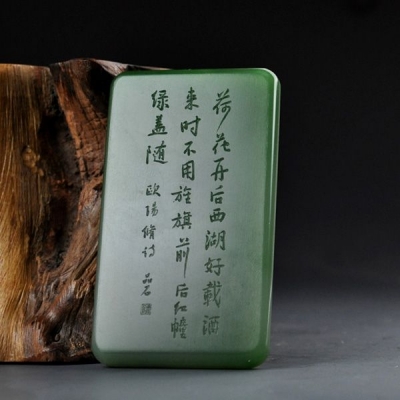 荷花开后西湖好載酒
来时不用旌旗前后红幢
绿盖随
欧陽脩诗 品石